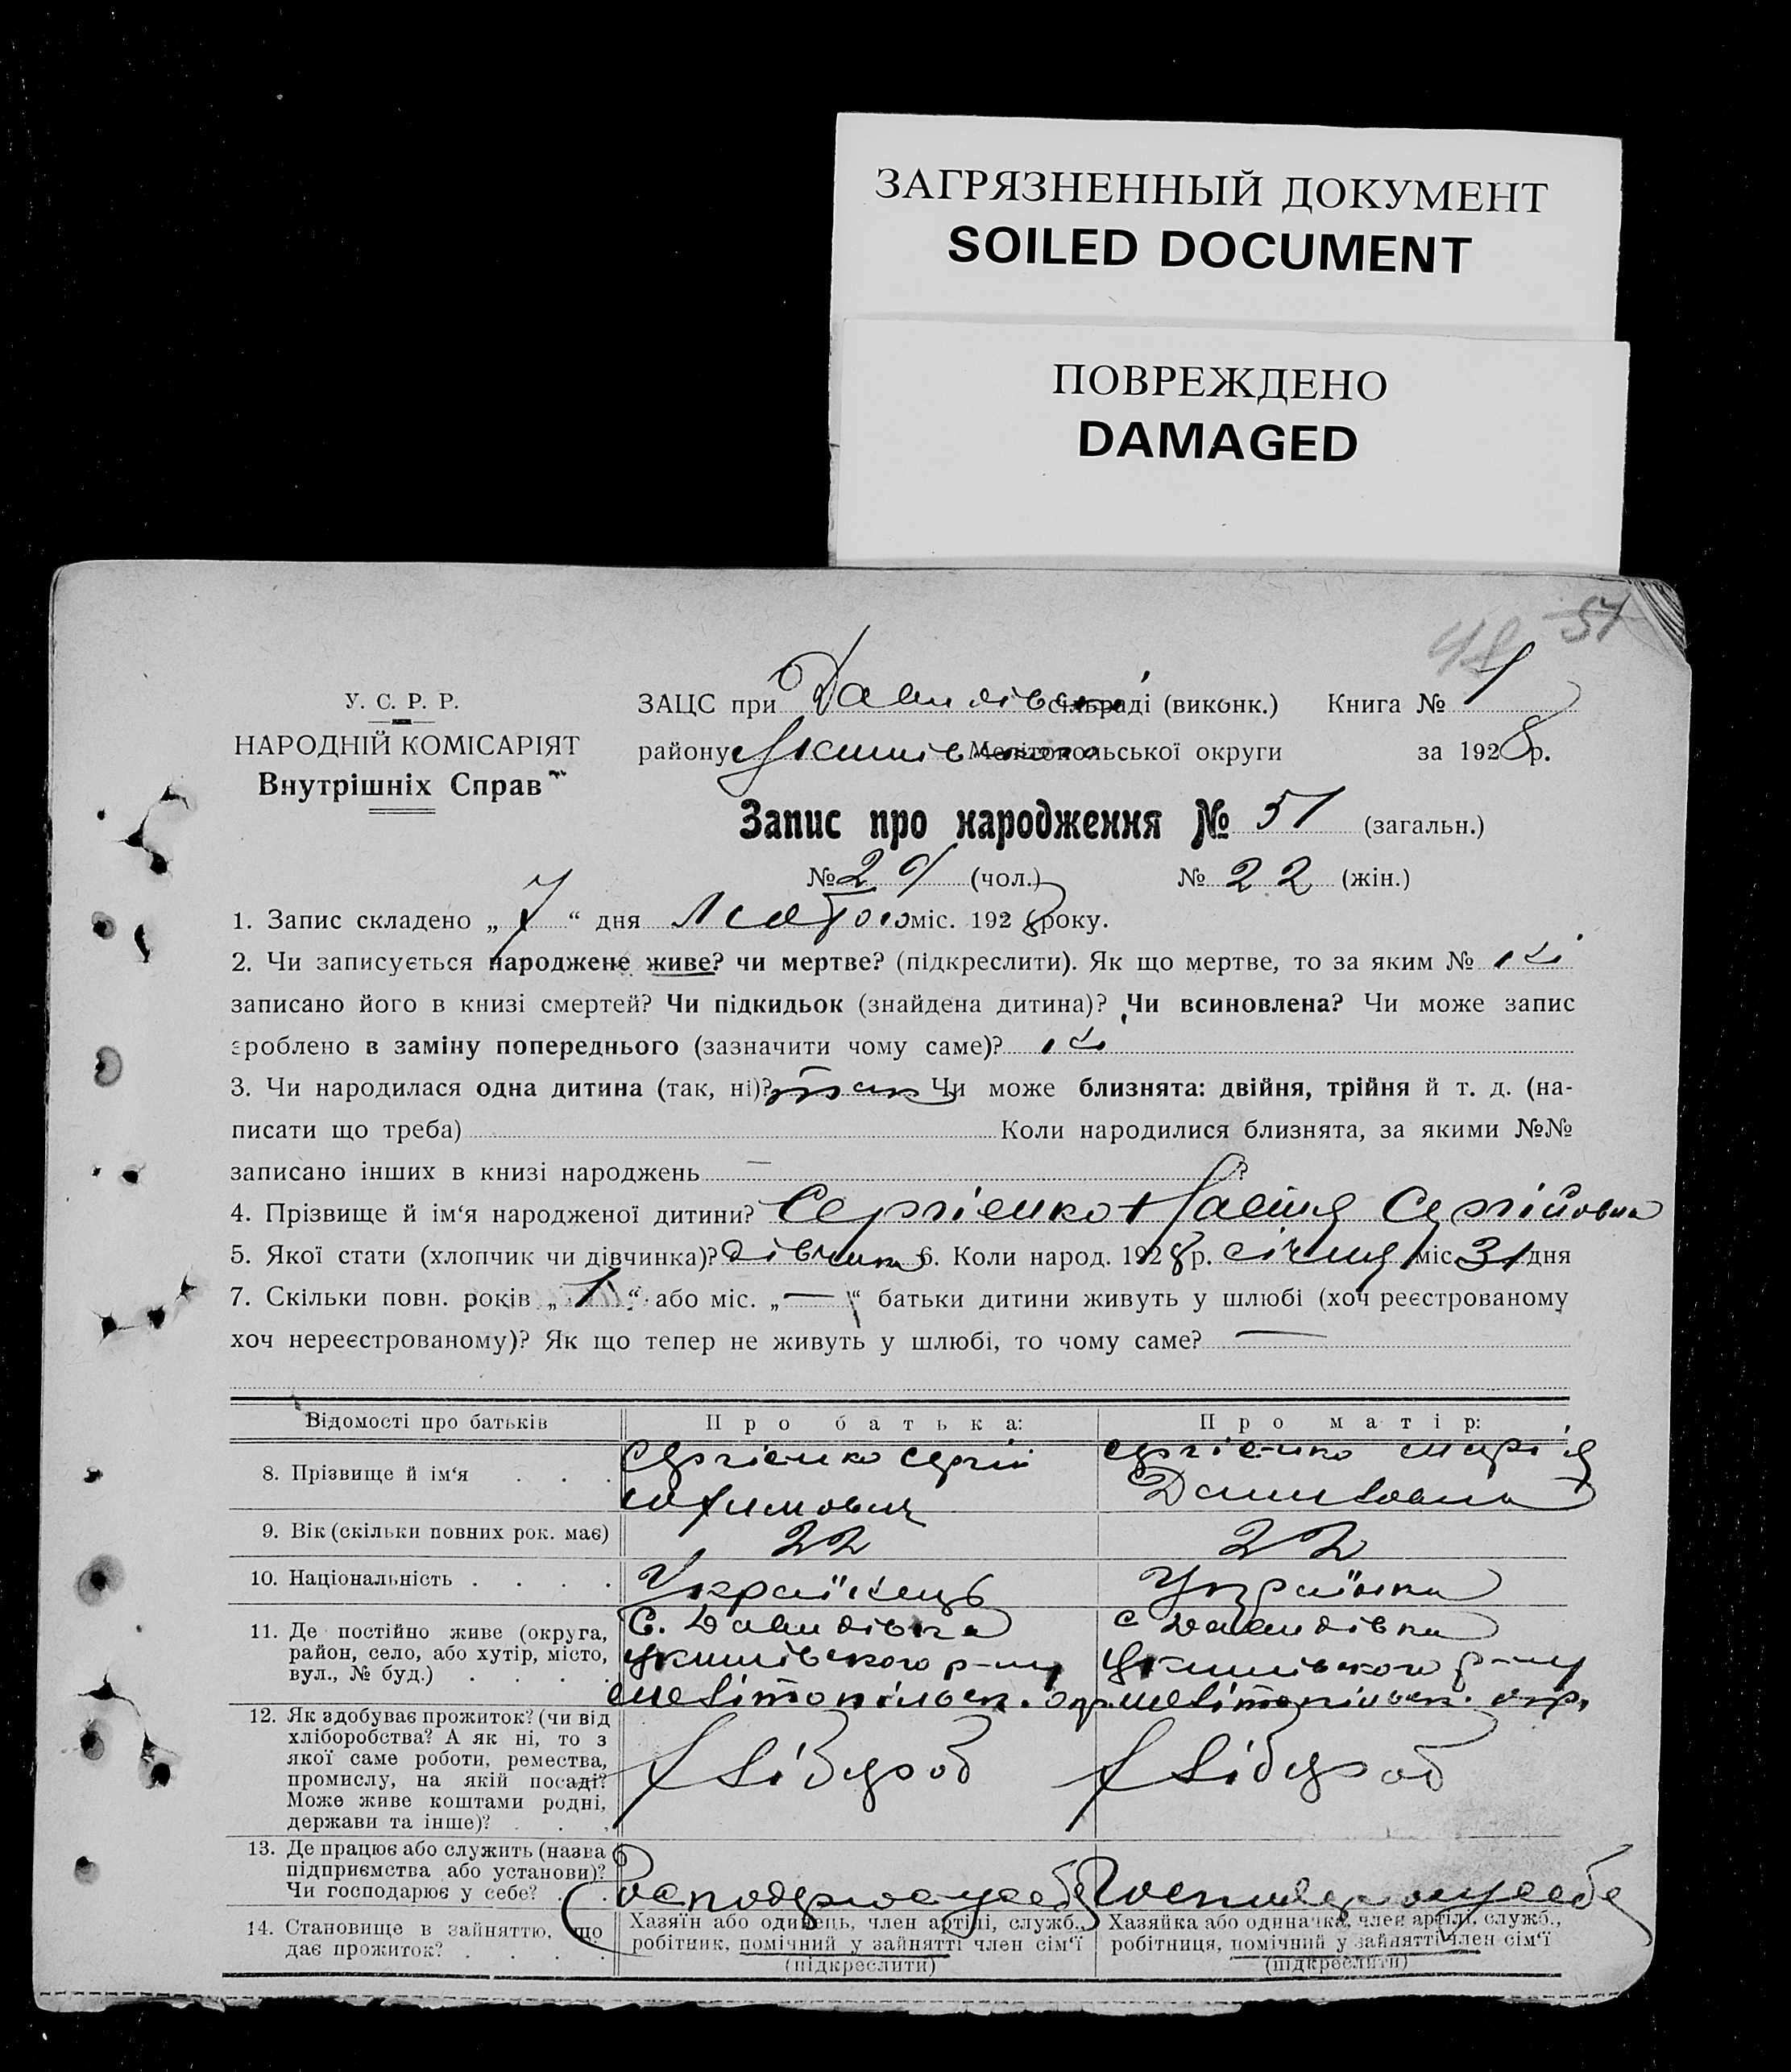 ЗАГРЯЗНЕННЫЙ ДОКУМЕНТ
SOILED DOCUMENT
ПОВРЕЖДЕНО
DAMAGED
48 51
У. С. Р. Р.
НАРОДНІЙ КОМІСАРІЯТ
Внутрішніх Справ
ЗАЦС при Давидівск. сільраді (виконк.) Книга № 1
району Мелітопольської округи за 1928 р.
Запис про народження № 51 (загальн.)
№ 29 (чол.) № 22 (жін.)
1. Запис складено „ 7 “ дня міс. 1928 року.
2. Чи записується народжене живе? чи мертве? (підкреслити). Як що мертве, то за яким № ні
записано його в книзі смертей? Чи підкидьок (знайдена дитина)? Чи всиновлена? Чи може запис
зроблено в заміну попереднього (зазначити чому саме)? ні
3. Чи народилася одна дитина (так, ні)? так Чи може близнята: двійня, трійня й т. д. (на-
писати що треба) Коли народилися близнята, за якими №№
записано інших в книзі народжень — ?
4. Прізвище й ім‘я народженої дитини? Сергієнко Сергійовна
5. Якої стати (хлопчик чи дівчинка)? дівчинка 6. Коли народ. 1928 р. січня міс. 31 дня
7. Скільки повн. років „ 1 “ або міс. „ — “ батьки дитини живуть у шлюбі (хоч реєстрованому
хоч нереєстрованому)? Як що тепер не живуть у шлюбі, то чому саме? —
Відомості про батьків Про батька: Про матір:
8. Прізвище й ім‘я . . . Сергієнко Сергій Юхимович Сергієнко Марія Даниловна
9. Вік (скільки повних рок. має) 22 22
10. Національність . . . . Українець Українка
11. Де постійно живе (округа, С. Давидівка с Давидівка
район, село, або хутір, місто, Якимівского р-ну Якимівского р-ну
вул., № буд.) . . . . Мелітопільск. окр. Мелітопільск. окр.
12. Як здобуває прожиток? (чи від
хліборобства? А як ні, то з
якої саме роботи, ремества, Хлібороб Хлібороб
промислу, на якій посаді?
Може живе коштами родні,
держави та інше)? . . .
13. Де працює або служить (назва
підприємства або установи)?
Чи господарює у себе? . . Господарює у себе Господарює у себе
14. Становище в зайняттю, що Хазяїн або одинець, член артілі, служб., Хазяйка або одиначка, член артілі, служб.,
дає прожиток? . . . . робітник, помічний у зайнятті член сім‘ї робітниця, помічний у зайнятті член сім‘ї
(підкреслити) (підкреслити)